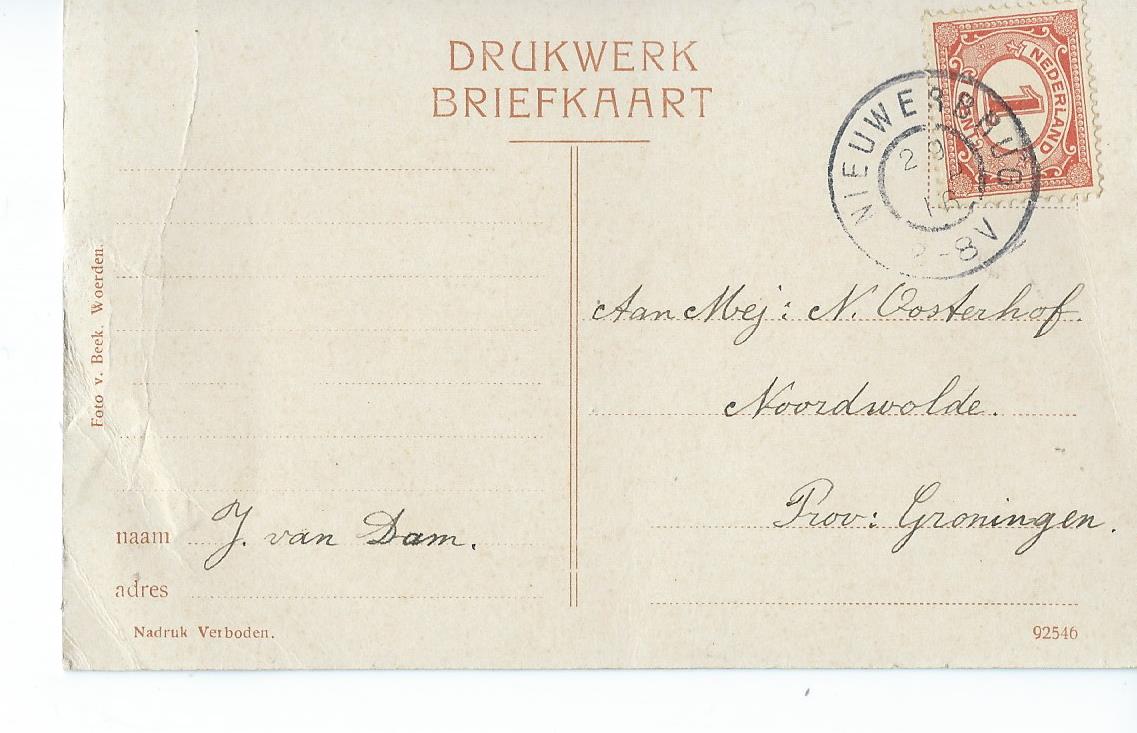 DRUKWERK
BRIEFKAART
1 NEDERLAND
1
NIEUWERBRUG
2 9
8V
Foto v. Beek. Woerden.
Aan Mej: N. Oosterhof.
Noordwolde.
Prov: Groningen.
naam J. van Dam.
adres
Nadruk Verboden.
92546